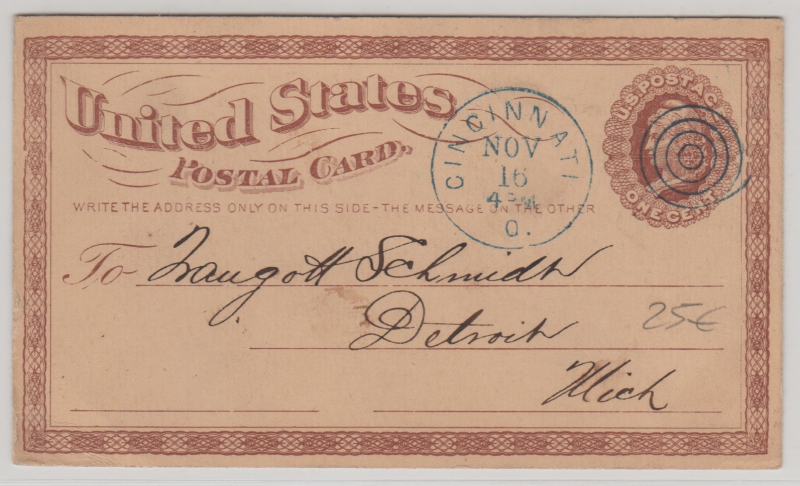 United States
POSTAL CARD.
WRITE THE ADDRESS ONLY ON THIS SIDE - THE MESSAGE ON THE OTHER
CINCINNATI
NOV
16
O.
U.S. POSTAG
ONE CENT
To Traugott Schmidt
Detroit
Mich
25€